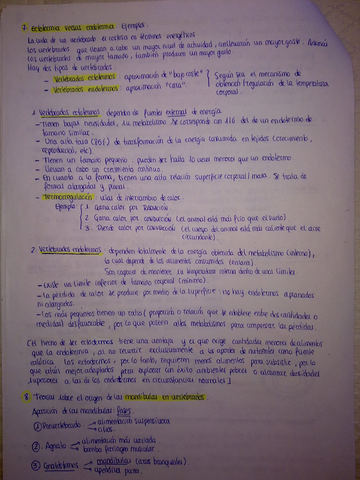 7. Ectotermia versus endotermia. Ejemplos.
La vida de un vertebrado se restringe en términos energéticos
los vertebrados que llevan a cabo un mayor nivel de actividad, realizarán un mayor gasto. Además
los vertebrados de mayor tamaño, también producen un mayor gasto
Hay dos tipos de vertebrados
- Vertebrados ectotermos: aproximación de "bajo coste"
- Vertebrados endotermos: aproximación "cara"
Según sea el mecanismo de
obtención/regulación de la temperatura
corporal.
1. Vertebrados ectotermos: dependen de fuentes externas de energía
- Tienen bajas necesidades, su metabolismo se corresponde con 1/6 del de un endotermo de
tamaño similar.
- Una alta tasa (86%) de transformación de la energía consumida en tejidos (crecimiento,
reproducción, etc).
- Tienen un tamaño pequeño: pueden ser hasta 10 veces menores que un endotermo
- Llevan a cabo un crecimiento continuo.
- En cuanto a la forma, tienen una alta relación superficie corporal/masa. Se trata de
formas alargadas y planas.
- Termorregulación: vías de intercambio de calor.
Ejemplo
1. Gana calor por radiación
2. Gana calor por conducción (el animal está más frío que el suelo)
3. Pierde calor por convección (el cuerpo del animal está más caliente que el aire
circundante).
2. Vertebrados endotermos: dependen totalmente de la energía obtenida del metabolismo (interna),
la cual depende de los alimentos consumidos (externa).
Son capaces de mantener su temperatura interna dentro de unos límites.
- Existe un límite inferior de tamaño corporal (mínimo)
- La pérdida de calor se produce por medio de la superficie: no hay endotermos aplanados
ni alargados.
- Los más pequeños tienen un ratio (proporción o relación que se establece entre dos cantidades o
medidas) desfavorable, por lo que poseen altos metabolismos para compensar las pérdidas.
[El hecho de ser ectotermos tiene una ventaja y es que exige cantidades menores de alimentos
que la endotermia, al no recurrir exclusivamente a los aportes de nutrientes como fuente
calórica. Los ectotermos, por lo tanto, requieren menos alimentos para subsistir, por lo
que están mejor adaptados para explotar con éxito ambientes pobres o alcanzar densidades
superiores a las de los endotermos en circunstancias normales].
8. Teorías sobre el origen de las mandíbulas en vertebrados.
Aparición de las mandíbulas: fases
1 Prevertebrado
alimentación suspensívora
cilios.
2 Agnato
alimentación más variada
bomba faríngea muscular.
3 Gnatóstomos
mandíbulas (arcos branquiales).
apéndices pares.